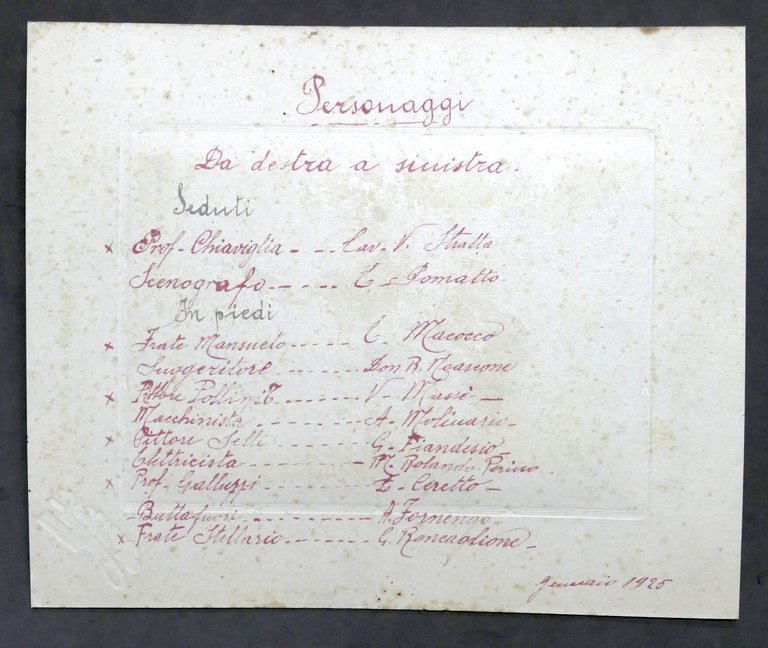 Personaggi
Da destra a sinistra.
Seduti
x Prof. Chiaviglia - - - Cav. V. Stratta
Scenografo - - - - - Pomatto
In piedi
x Frate Mansueto - - - - Macocco
Suggeritore - - - - - Don B.
x Pittore - - - - - - V. Massè -
Macchinista - - - - - - - A. Molinario -
x Pittore Selli - - - - - - G. Fiandesio
Elettricista - - - - - - - - M. Rolando Perino
x Prof. Galluppi - - - - - - Ceretto -
Buttafuori - - - - - - - - - A. Fornengo -
x Frate Stellario - - - - - - G. Roncaglione -
gennaio 1925